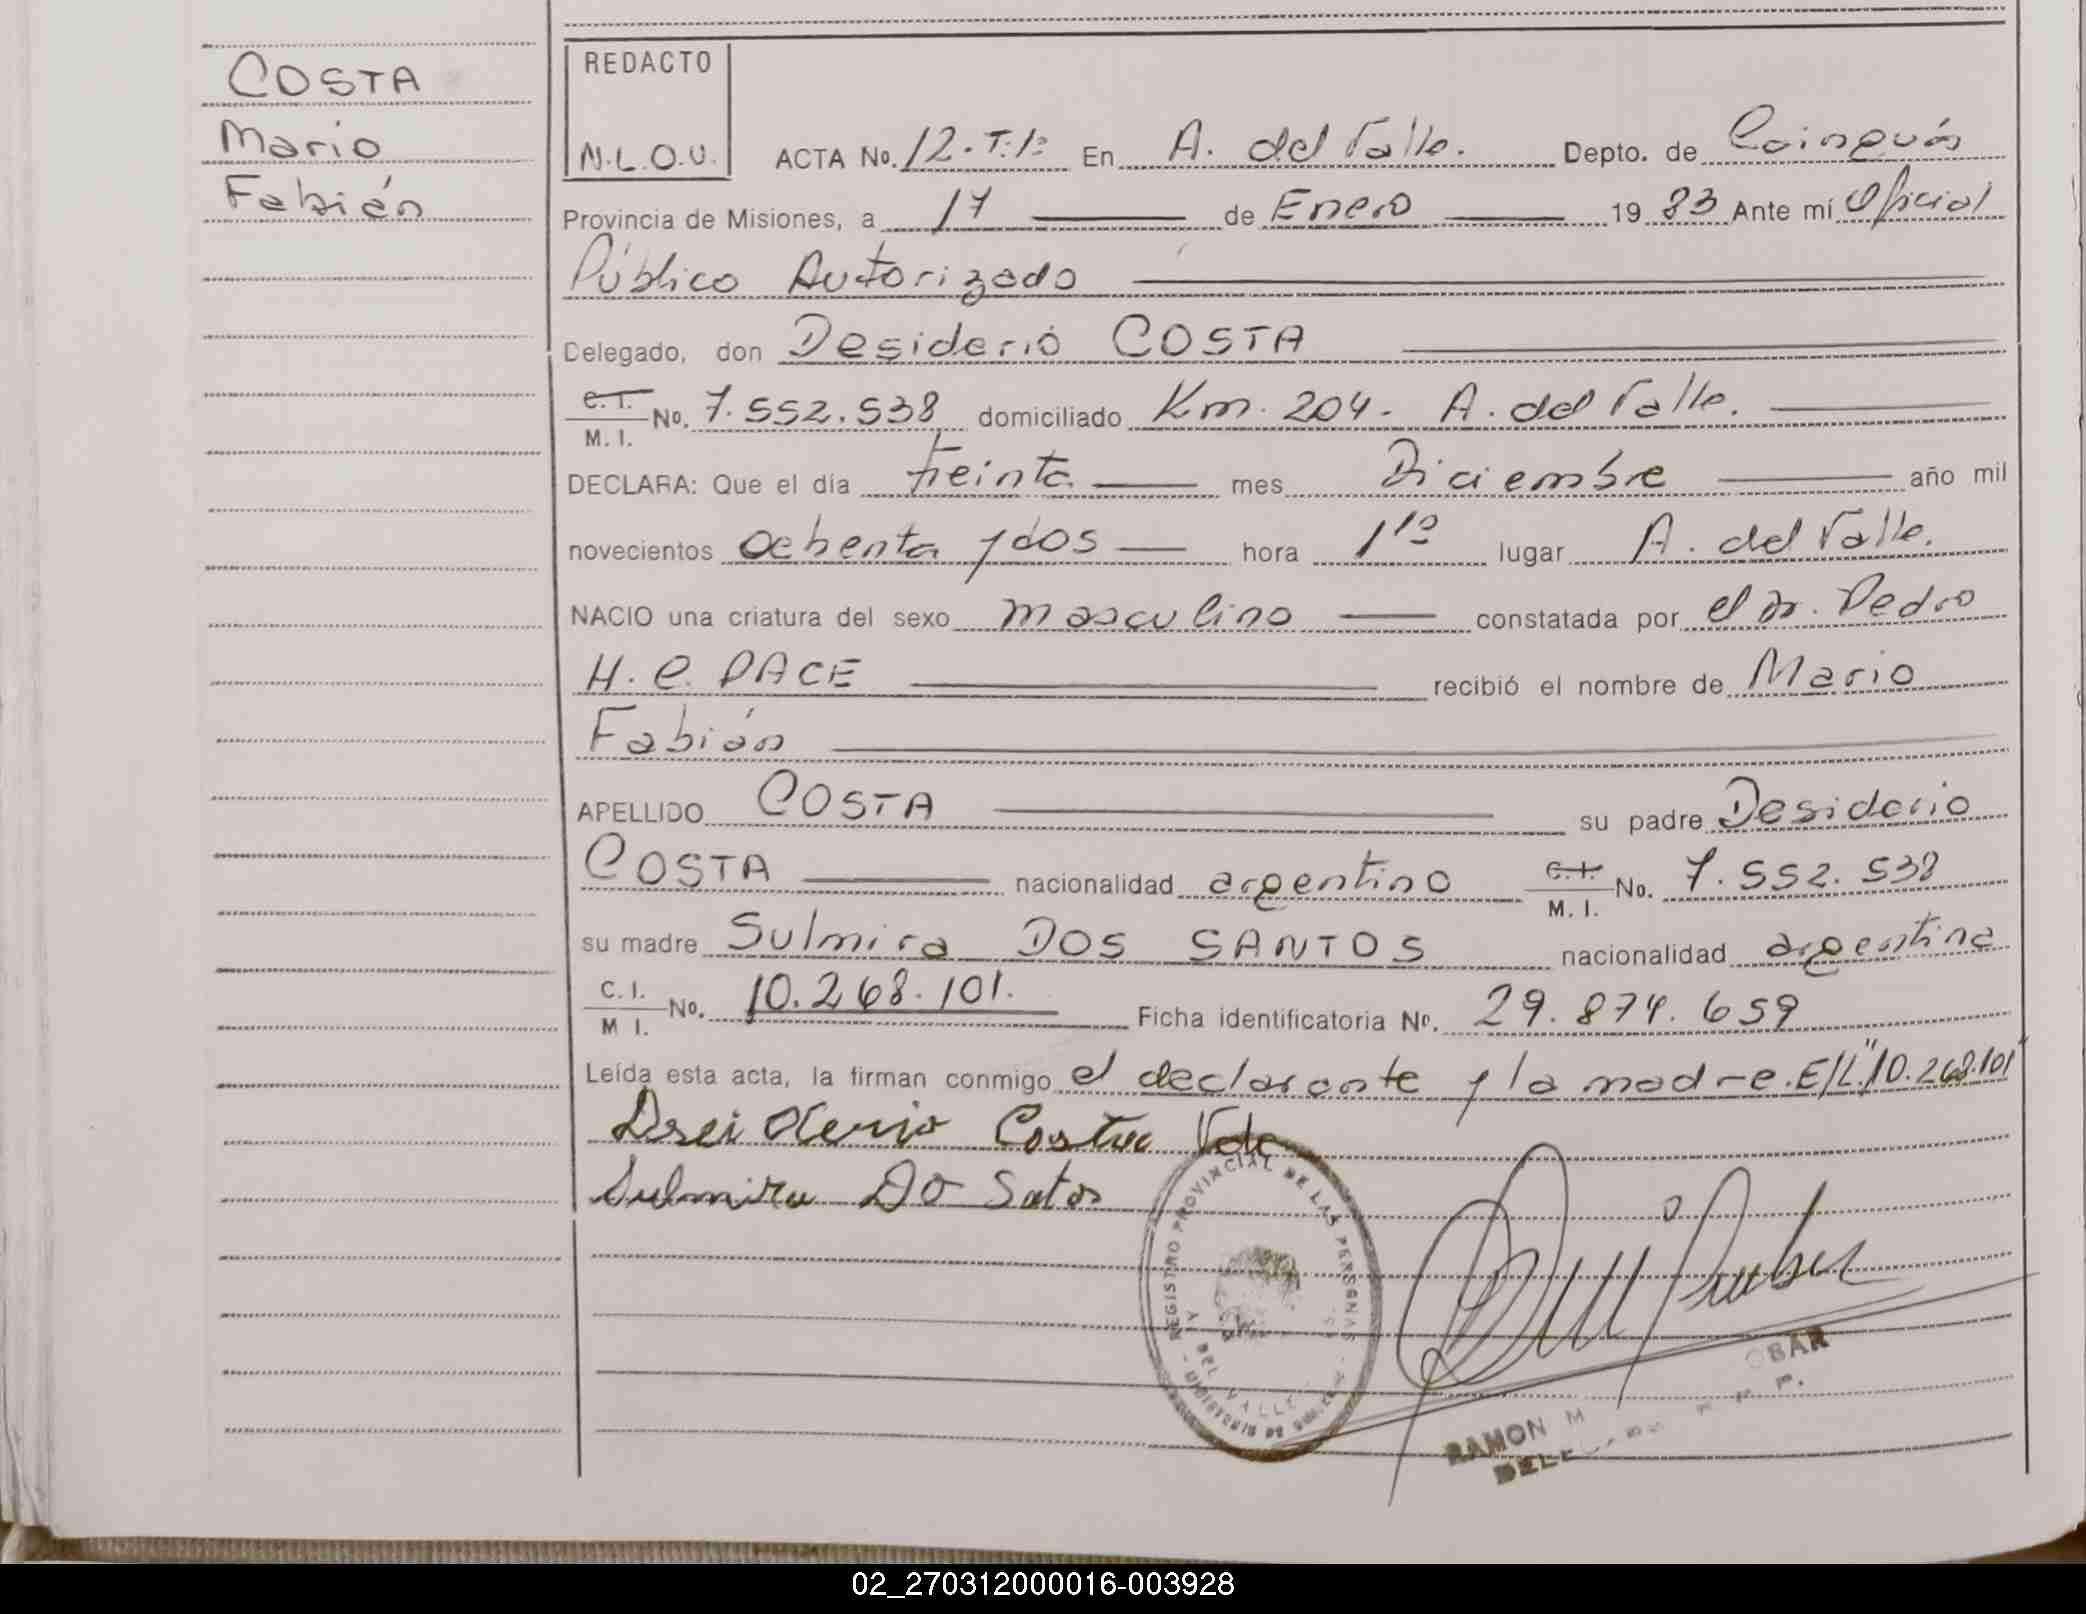 COSTA
Mario
Fabián
REDACTO
N.L.O.U.
ACTA No. 12.T:1º En A. del Valle. Depto. de Cainguás
Provincia de Misiones, a 17 de Enero 19 83 Ante mí Oficial
Público Autorizado
Delegado, don Desiderio COSTA
C.I. M.I. No. 7.552.538 domiciliado Km. 204. A. del Valle.
DECLARA: Que el día treinta mes Diciembre año mil
novecientos ochenta y dos hora 11º lugar A. del Valle.
NACIO una criatura del sexo masculino constatada por el Dr. Pedro
H. C. PACE recibió el nombre de Mario
Fabián
APELLIDO COSTA su padre Desiderio
COSTA nacionalidad argentino C.I. M.I. No. 7.552.538
su madre Sulmira DOS SANTOS nacionalidad argentina
C.I. M I. No. 10.268.101. Ficha identificatoria No. 29.874.659
Leída esta acta, la firman conmigo el declarante y la madre. E/L"10.268.101"
Costa
Sulmira Do Satos
REGISTRO PROVINCIAL DE LAS PERSONAS
DEL VALLE
RAMON M
OBAR
02_270312000016-003928